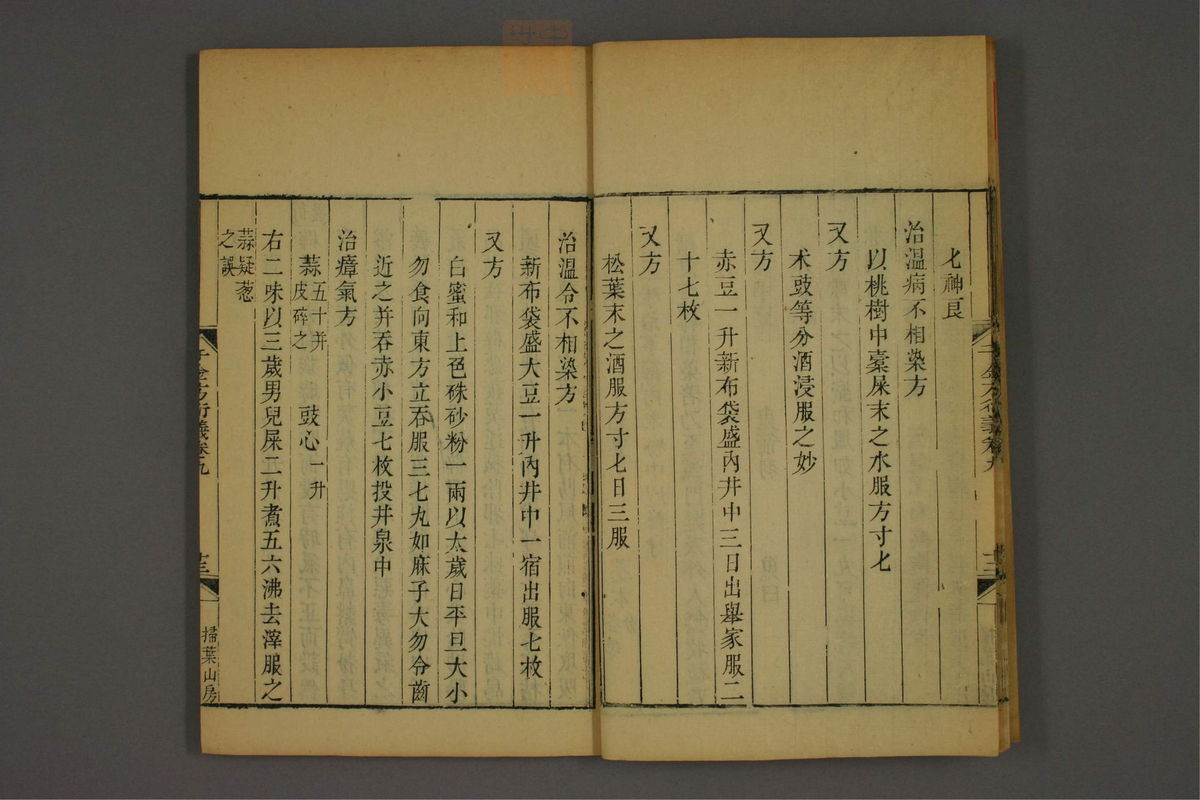 七神良
治溫病不相染方
以桃樹中蠹屎末之水服方寸匕
又方
术豉等分酒浸服之妙
又方
赤豆一升新布袋盛內井中三日出舉家服二
十七枚
又方
松葉末之酒服方寸匕日三服
治溫令不相染方
新布袋盛大豆一升內井中一宿出服七枚
又方
白蜜和上色硃砂粉一兩以太歲日平旦大小
勿食向東方立吞服三七丸如麻子大勿令齒
近之并吞赤小豆七枚投井泉中
治瘴氣方
蒜五十并皮碎之 豉心一升
右二味以三歲男兒屎二升煮五六沸去滓服之
蒜疑葱
之誤
千金方衍義卷九
十三
掃葉山房